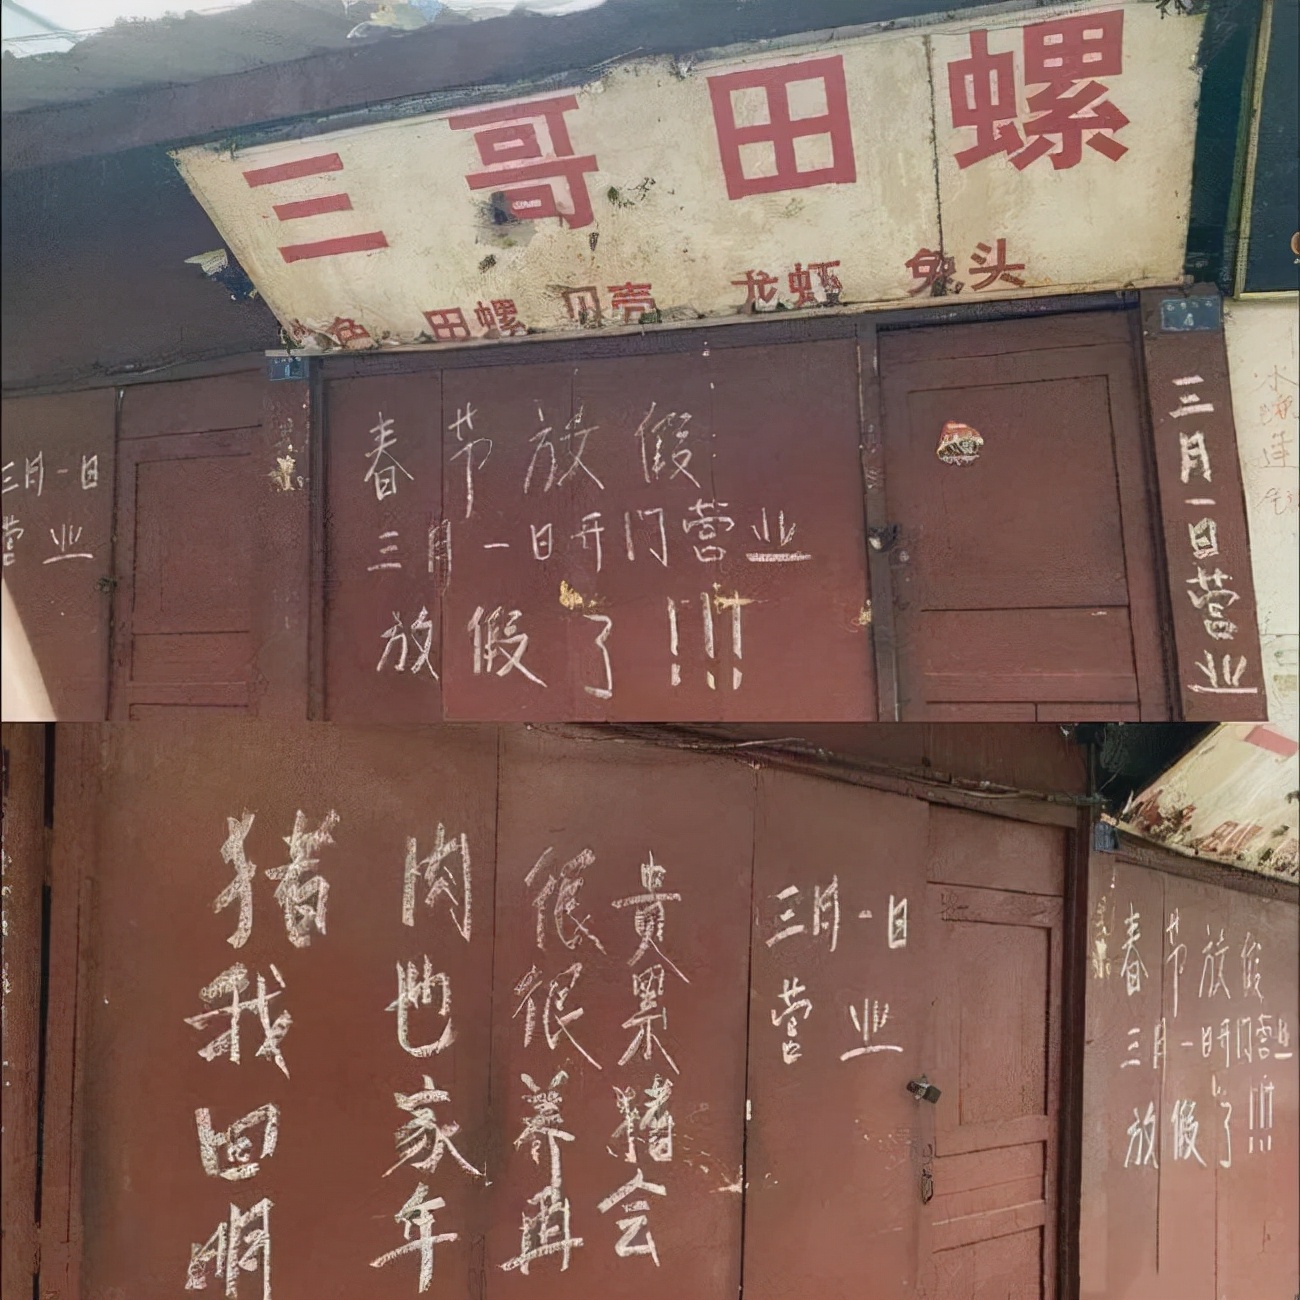 三哥田螺
鱼 田螺 贝壳 龙虾 兔头
三月一日
营业
春节放假
三月一日开门营业
放假了!!!
三月一日营业
猪肉很贵
我也很累
回家养猪
明年再会
三月一日
营业
春节放假
三月一日开门营业
放假了!!!